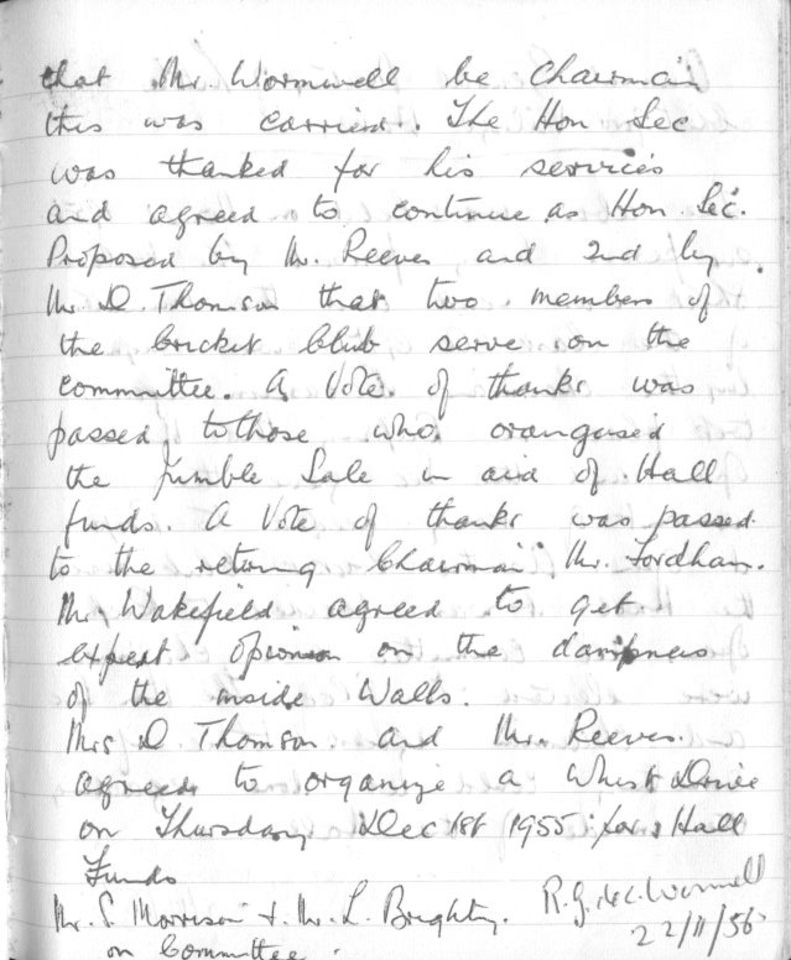 that Mr. Wormwell be Chairman
this was carried. The Hon Sec
was thanked for his services
and agreed to continue as Hon. Sec.
Proposed by Mr. Reeves and 2nd by
Mr D. Thomson that two members of
the Cricket Club serve on the
committee. A Vote of thanks was
passed to those who orangused
the Jumble Sale in aid of Hall
funds. A Vote of thanks was passed
to the retiring Chairman Mr. Fordham.
Mr. Wakefield agreed to get
expert opinion on the dampness
of the inside Walls.
Mrs D Thomson and Mr. Reeves.
agreed to organize a Whist Drive
on Thursday Dec 1st 1955 for Hall
Funds
Mr. S. Morrison + Mr. L. Brighty.
on Committee.
22/11/56